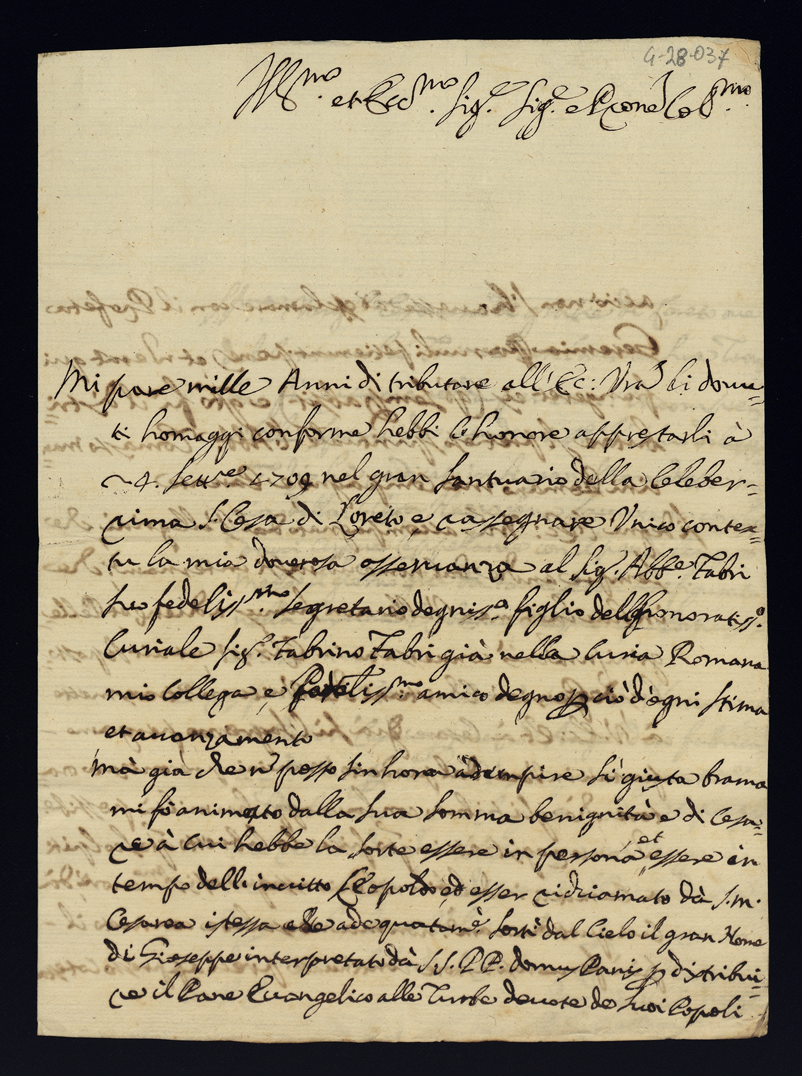 G-28-037
Ill.mo et Ecc.mo Sig.r Sig.e e Prone Col.mo
Mi pare mille Anni di tributare all'Ec: Vra li dovu=
ti homaggi conforme hebbi l'honore appretarli à
4. Sett.e 1709 nel gran Santuario della Celeber=
rima S. Casa di Loreto, e rassegnare Unico contex=
tu la mia doverosa osservanza al Sig. Abb.e Fabri
suo fedeliss.mo segretario degniss.o figlio dell'honoratiss.o
Curiale Sig.r Fabrino Fabri già nella Curia Romana
mio Collega, e fedeliss.mo amico degno p ciò d'ogni stima
et avanzamento
Mà già che n posso sin hora adempire sì giusta brama
mi fò animato dalla sua somma benignità e di Cesa=
re à cui hebbe la sorte essere in persona et essere in
tempo dell'invitto Leopoldo, ed esser richiamato dà S.M.
Cesarea istessa che adequatam.e sortì dal Cielo il gran Nome
di Gioseppe interpretato dà S.S.P.P. domus Panis p distribui=
re il Pane Evangelico alle Turbe devote de suoi Popoli